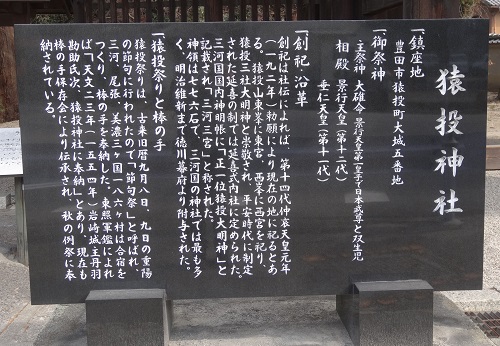 猿投神社
一鎮座地
豊田市猿投町大城五番地
一御祭神
主祭神 大碓命 景行天皇第一皇子で日本武尊と双生児
相殿 景行天皇(第十二代)
垂仁天皇(第十一代)
一創祀 沿革
創祀は社伝によれば、第十四代仲哀天皇元年
(一九二年)勅願により現在の地に祀るとあ
る。猿投山東峯に東宮、西峯に西宮を祀り、
猿投三社大明神と崇敬され、平安時代に制定
された延喜の制では延喜式内社に定められた。
三河国国内神明帳に「正一位猿投大明神」と
記載され「三河三宮」と称された。
神領は七七六石で、三河国の神社では最も多
く、明治維新まで徳川幕府より附与された。
一猿投祭りと棒の手
猿投祭りは、古来旧暦九月八日、九日の重陽
の節句に行われたので「節句祭」と呼ばれ、
三河、尾張、美濃三ヶ国一八六ヶ村は合宿を
つくり、棒の手を奉納した。東照軍鑑によれ
ば「天文二三年(一五五四年)岩崎城主丹羽
勘助氏次、猿投神社に奉納」とあり、現在も
棒の手保存会により伝承され、秋の例祭に奉
納されている。